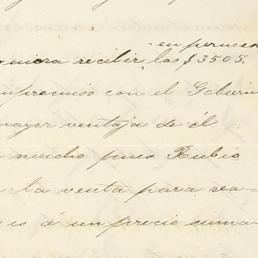 en permu
quiera recibir las $3505.
mpromiso con el Gobier
mayor ventaja de él
mucho pues Rubio
la venta para rea
es á un precio suma